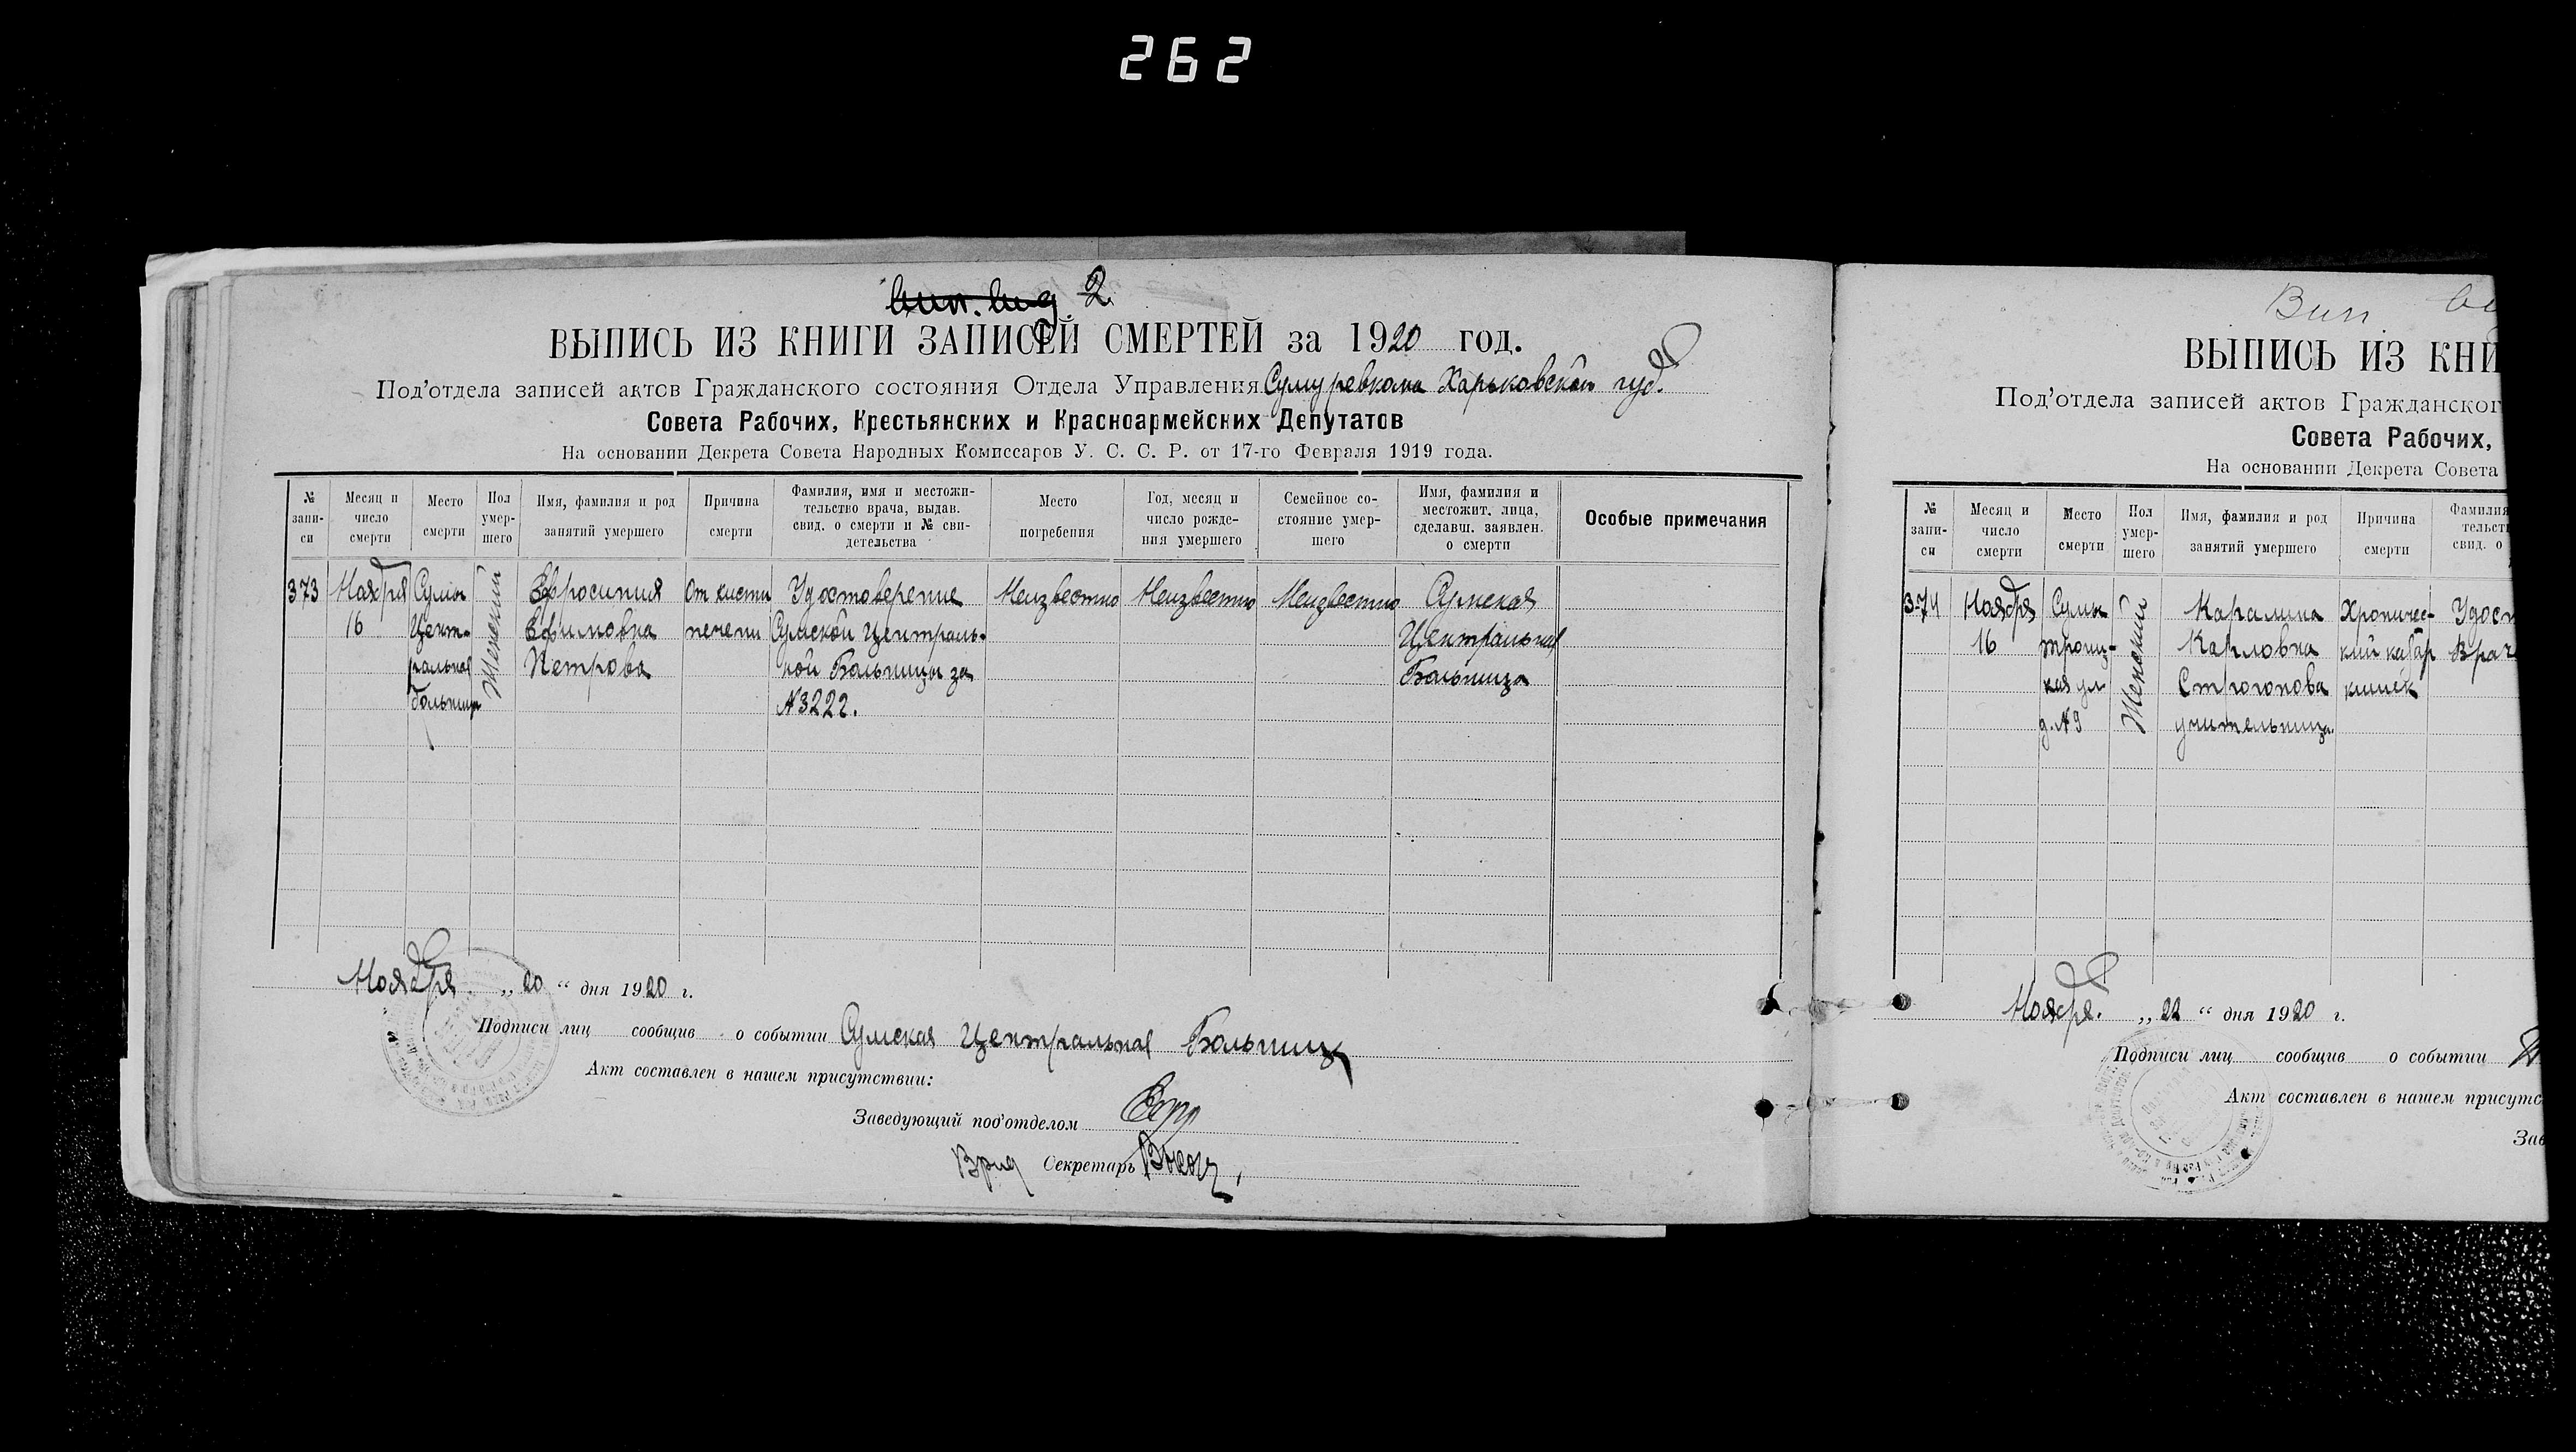 262
2.
ВЫПИСЬ ИЗ КНИГИ ЗАПИСЕЙ СМЕРТЕЙ за 1920 год.
Под'отдела записей актов Гражданского состояния Отдела Управления Сумуревкома Харьковской губ.
Совета Рабочих, Крестьянских и Красноармейских Депутатов
На основании Декрета Совета Народных Комиссаров У. С. С. Р. от 17-го Февраля 1919 года.
№ запи- си
Месяц и число смерти
Место смерти
Пол умер- шего
Имя, фамилия и род занятий умершего
Причина смерти
Фамилия, имя и местожи- тельство врача, выдав. свид. о смерти и № сви- детельства
Место погребения
Год, месяц и число рожде- ния умершего
Семейное со- стояние умер- шего
Имя, фамилия и местожит. лица, сделавш. заявлен. о смерти
Особые примечания
373
Ноября
16
Сумы
Цент-
ральная
больница
Женский
Ефросиния
Ефимовна
Петрова
От кисты
печени
Удостоверение
Сумской Централь-
ной Больницы за
№3222.
Неизвестно
Неизвестно
Неизвестно
Сумская
Центральная
Больница
Ноября „20“ дня 1920 г.
Подписи лиц сообщив о событии Сумская Центральная Больница
Акт составлен в нашем присутствии:
Заведующий под'отделом
Врид Секретарь
Вип
ВЫПИСЬ ИЗ КНИ
Под'отдела записей актов Гражданског
Совета Рабочих,
На основании Декрета Совета
№ запи- си
Месяц и число смерти
Место смерти
Пол умер- шего
Имя, фамилия и род занятий умершего
Причина смерти
Фамилия тельст свид. о
374
Ноября
16
Сумы
Троиц-
кая ул
д.№9
Женский
Каралина
Карловна
Строгонова
учительница.
Хроничес-
кий катар
кишек
Удост
Врач
Ноября. „22“ дня 1920 г.
Подписи лиц сообщив о событии
Акт составлен в нашем присутс
Зав